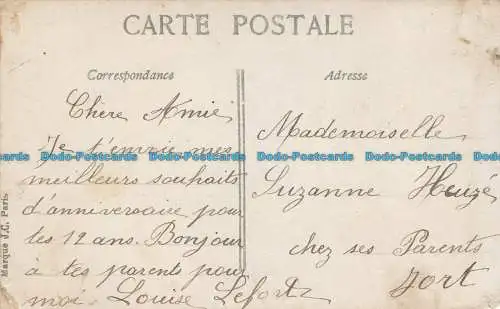 CARTE POSTALE
Correspondance
Adresse
Chère Amie
Je t'envoie mes
meilleurs souhaits
d'anniversaire pour
tes 12 ans. Bonjour
à tes parents pour
moi. Louise Lefort
Mademoiselle
Suzanne Heuzé
chez ses Parents
Jort
Marque J.C. Paris
Bids-Postcards Bids-Postcards Bids-Postcards Bids-Postcards